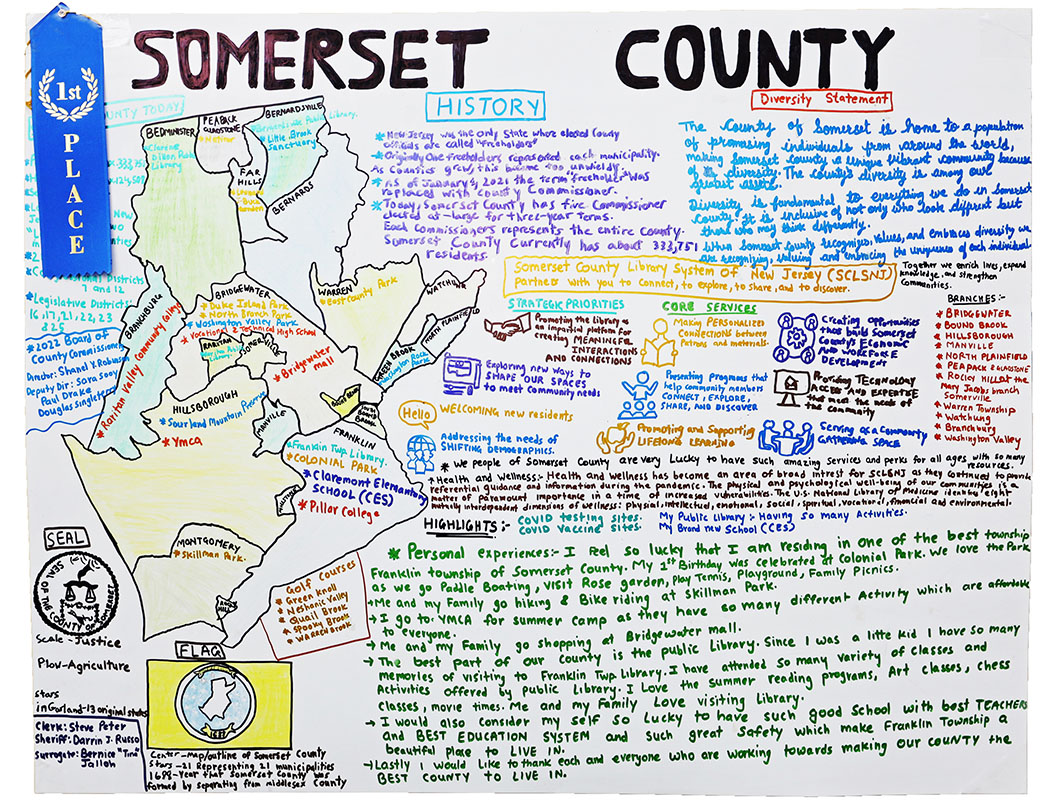 SOMERSET COUNTY
1st
PLACE
COUNTY TODAY
333,751
New
two
Congressional Districts
7 and 12
*Legislative Districts
16, 17, 21, 22, 23
& 25
*2022 Board of
County Commissioners
Director: Shanel Y. Robinson
Deputy Dir: Sara Sooy
Paul Drake
Douglas Singleterry
BEDMINISTER
*Clarence
Dillon Public
Library
PEAPACK
GLADSTONE
BERNARDSVILLE
*Bernardsville Public Library.
*Little Brook
Sanctuary
FAR
HILLS
BERNARDS
BRANCHBURG
*Raritan Valley Community College
BRIDGEWATER
*Duke Island Park
*North Branch Park
*Washington Valley Park
*Vocational & Technical High School
RARITAN
SOMERVILLE
*Bridgewater
mall
WARREN
*East County Park
WATCHUNG
NORTH PLAINFIELD
GREEN BROOK
*Washington Rock
Park
HILLSBOROUGH
*Sourland Mountain Preserve
*Ymca
MANVILLE
FRANKLIN
*Franklin Twp Library.
*COLONIAL PARK
*CLAREMONT Elementary
SCHOOL (CES)
*Pillar College
MONTGOMERY
*Skillman Park.
Golf Courses
*Green Knoll
*Neshanic Valley
*Quail Brook
*Spooky Brook
*Warren Brook
SEAL
SEAL OF THE COUNTY OF SOMERSET
Scale-Justice
Plow-Agriculture
stars
in Garland-13 original states
Clerk: Steve Peter
Sheriff: Darrin J. Russo
Surrogate: Bernice "Tina"
Jalloh
FLAG
1688
Center-map/outline of Somerset County
Stars-21 Representing 21 municipalities
1688-Year that Somerset County was
formed by separating from middlesex County
HISTORY
*New Jersey was the only State where elected County
officials are called "freeholders"
*Originally One freeholders represented each municipality.
As Counties grew, this became too unwieldy
*As of January 1, 2021 the term "freeholder" was
replaced with County Commissioner.
*Today, Somerset County has five Commissioner
elected at-large for three-year terms.
Each Commissioners represents the entire County.
Somerset County Currently has about 333,751
residents.
Diversity Statement
The County of Somerset is home to a population
of promising individuals from around the world,
making Somerset county a unique vibrant community because
of its diversity. The county's diversity is among our
greatest assets.
Diversity is fundamental to everything we do in Somerset
County. It is inclusive of not only who look diffrent but
those who may think differently.
When Somerset County recognizes, values, and embraces diversity we
are recognizing, valuing and embracing the uniqueness of each individual.
Somerset County Library System OF New Jersey (SCLSNJ)
Partners with you to connect, to explore, to share, and to discover.
Together we enrich lives, expand
knowledge, and strengthen
communities.
STRATEGIC PRIORITIES
Promoting the Library as
an impartial platform for
creating MEANINGFUL
INTERACTIONS
AND CONNECTIONS
Exploring new ways to
SHAPE OUR SPACES
to meet community needs
Hello
WELCOMING new residents
Addressing the needs of
SHIFTING DEMOGRAPHICS.
CORE SERVICES
Making PERSONALIZED
CONNECTIONS between
Patrons and materials.
Presenting programs that
help community members
CONNECT, EXPLORE,
SHARE, AND DISCOVER
Promoting and Supporting
LIFELONG LEARNING
Creating opportunities
that build Somerset
County's ECONOMIC
AND WORKFORCE
DEVELOPMENT
Providing TECHNOLOGY
ACCESS AND EXPERTISE
that meet the needs of
the community
Serving as a Community
GATHERING SPACE
BRANCHES:-
*BRIDGEWATER
*BOUND BROOK
*HILLSBOROUGH
*MANVILLE
*NORTH PLAINFIELD
*PEAPACK & GLADSTONE
*ROCKY HILL at the
Mary Jacobs branch
Somerville
*Warren Township
*Watchung
*Branchburg
*Washington Valley
*We people of Somerset County are very Lucky to have such amazing Services and perks for all ages with so many
resources.
*Health and Wellness:- Health and wellness has become an area of broad intrest for SCLSNJ as they continued to provide
referential guidance and information during the pandemic. The physical and psychological well-being of our communities is
matter of paramount importance in a time of increased vulnerabilities. The U.S. National Library of Medicine identify eight
mutually interdependent dimensions of wellness: physical, intellectual, emotional, social, spiritual, vocational, financial and environmental.
HIGHLIGHTS:-
COVID testing sites.
COVID Vaccine Sites.
My Public Library:- Having so many Activities.
My Brand new School (CES)
*Personal experiences:- I feel so lucky that I am residing in one of the best township
Franklin township of Somerset County. My 1st Birthday was celebrated at Colonial Park. We love the Park
as we go Paddle Boating, VISIT Rose garden, Play Tennis, Playground, Family Picnics.
→Me and my Family go hiking & Bike riding at Skillman Park.
→I go to YMCA for summer Camp as they have so many different Activity which are affordable
to everyone.
→Me and my Family go shopping at Bridgewater mall.
→The best part of our county is the public Library. Since I was a litte kid I have so many
memories of visiting to Franklin Twp Library. I have attended so many variety of classes and
Activities offered by Public Library. I Love the Summer reading programs, Art classes, chess
classes, movie times. Me and my Family Love visiting Library.
→I would also consider my self so Lucky to have such good School with best TEACHERS
and BEST EDUCATION SYSTEM and such great Safety which make Franklin Township a
beautiful place to LIVE IN.
→Lastly I would Like to thank each and everyone who are working towards making our COUNTY the
BEST COUNTY TO LIVE IN.